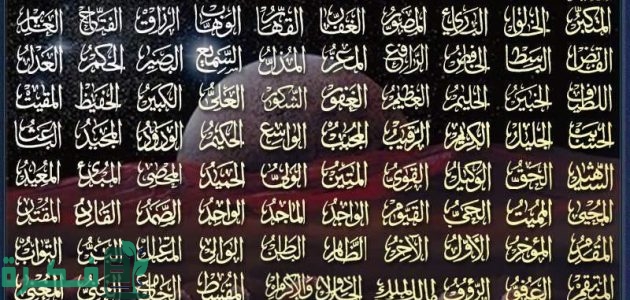 المتكبر الخالق البارئ المصور الغفار القهار الوهاب الرزاق الفتاح العليم
القابض الباسط الخافض الرافع المعز المذل السميع البصير الحكم العدل
اللطيف الخبير الحليم العظيم الغفور الشكور العلي الكبير الحفيظ المقيت
الحسيب الجليل الكريم الرقيب المجيب الواسع الحكيم الودود المجيد الباعث
الشهيد الحق الوكيل القوي المتين الولي الحميد المحصي المبدئ المعيد
المحيي المميت الحي القيوم الواجد الماجد الواحد الصمد القادر المقتدر
المقدم المؤخر الأول الآخر الظاهر الباطن الوالي المتعالي البر التواب
المنتقم العفو الرؤوف مالك الملك ذو الجلال والإكرام المقسط الجامع الغني المغني
فكرة